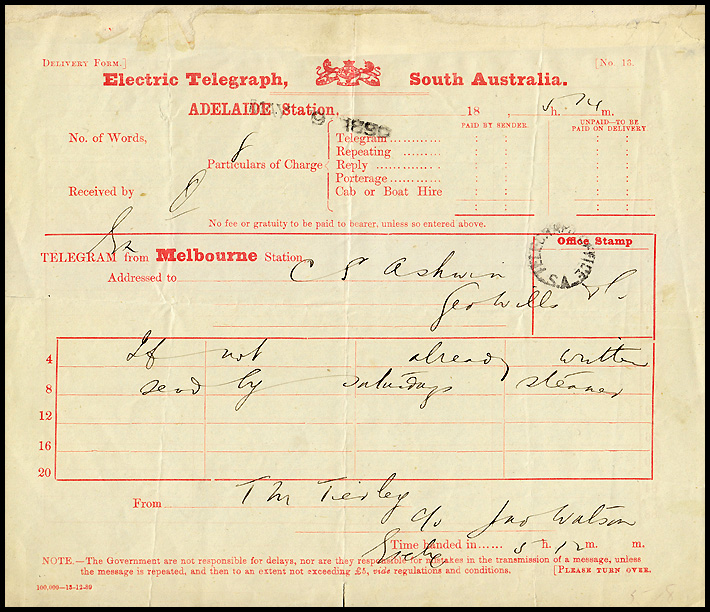 DELIVERY FORM.] [No. 18.
Electric Telegraph, South Australia.
ADELAIDE Station, 18 , 5 h. 14 m.
9 1890
PAID BY SENDER. UNPAID—TO BE PAID ON DELIVERY
No. of Words, 8
Particulars of Charge
Telegram............
Repeating ........
Reply ...............
Porterage............
Cab or Boat Hire
Received by
No fee or gratuity to be paid to bearer, unless so entered above.
TELEGRAM from Melbourne Station.
Office Stamp
Addressed to C S Ashwin
Geo Wills
4 If not already written
8 send by saturdays steamer
12
16
20
From T M Tierley
c/o Jno Watson
Time handed in...... 5 h. 12 m. m.
NOTE.—The Government are not responsible for delays, nor are they responsible for mistakes in the transmission of a message, unless
the message is repeated, and then to an extent not exceeding £5, vide regulations and conditions. [PLEASE TURN OVER.
100,000—13-12-89